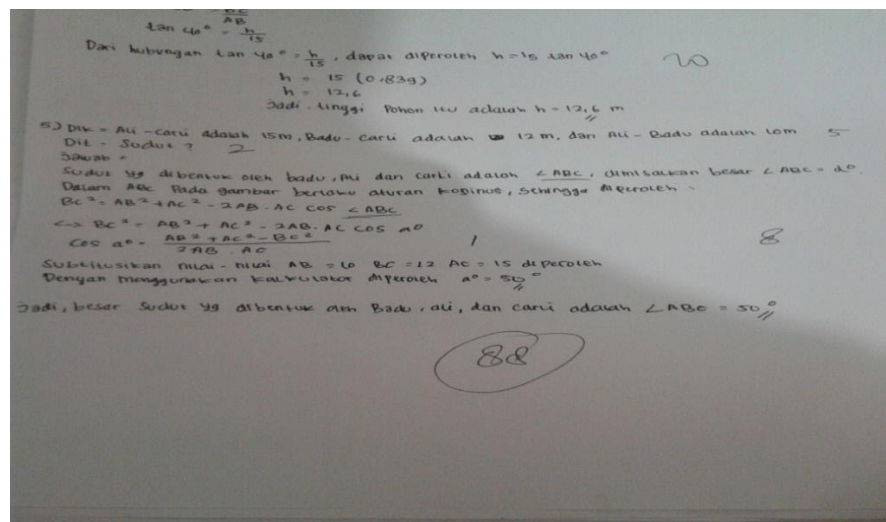 AB
tan 40° = h/15
Dari hubungan tan 40° = h/15, dapat diperoleh h = 15 tan 40°
20
h = 15 (0,839)
h = 12,6
Jadi, tinggi Pohon itu adalah h = 12,6 m
5) Dik = Ali - Carli adalah 15m, Badu - Carli adalah 12 m, dan Ali - Badu adalah 10m
5
Dit = Sudut ?
2
Jawab =
Sudut yg dibentuk oleh badu, Ali dan Carli adalah ∠ABC, dimisalkan besar ∠ABC = a°.
Dalam ABC Pada gambar berlaku aturan kosinus, sehingga diperoleh
BC² = AB² + AC² - 2AB · AC cos ∠ABC
<-> BC² = AB² + AC² - 2AB · AC cos a°
Cos a° = AB² + AC² - BC² / 2AB · AC
1
8
Substitusikan nilai - nilai AB = 10 BC = 12 AC = 15 diperoleh
Dengan menggunakan kalkulator diperoleh a° = 50°
Jadi, besar sudut yg dibentuk oleh Badu, ali, dan carli adalah ∠ABC = 50°
88